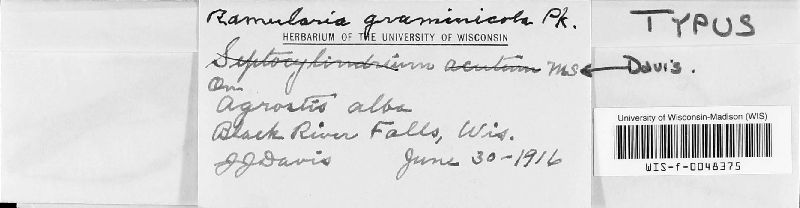 Ramularia graminicola Pk.
HERBARIUM OF THE UNIVERSITY OF WISCONSIN
Septocylindrium acutum ms ← Davis.
On
Agrostis alba
Black River Falls, Wis.
JJDavis June 30-1916
TYPUS
University of Wisconsin-Madison (WIS)
WIS-f-0048375